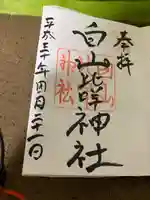 奉拝
白山比咩神社
平成三十年四月二十一日